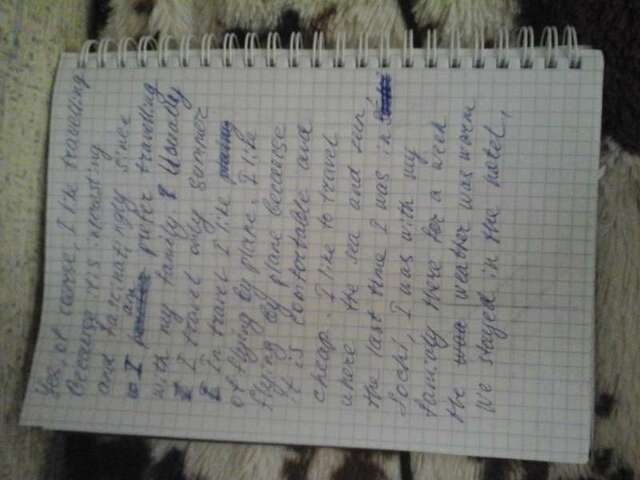 Yes, of course, I like travelling
Because it is interesting
and fascinatingly since
I am prefer travelling
with my family & Usually
I travel only summer
In travel I like
of flying by plane. I like
flying by plane because
it is comfortable and
cheap. I like to travel
where the sea and sun,
the last time I was in
Sochi, I was with my
family there for a week
the weather was worm
We stayed in the hotel,